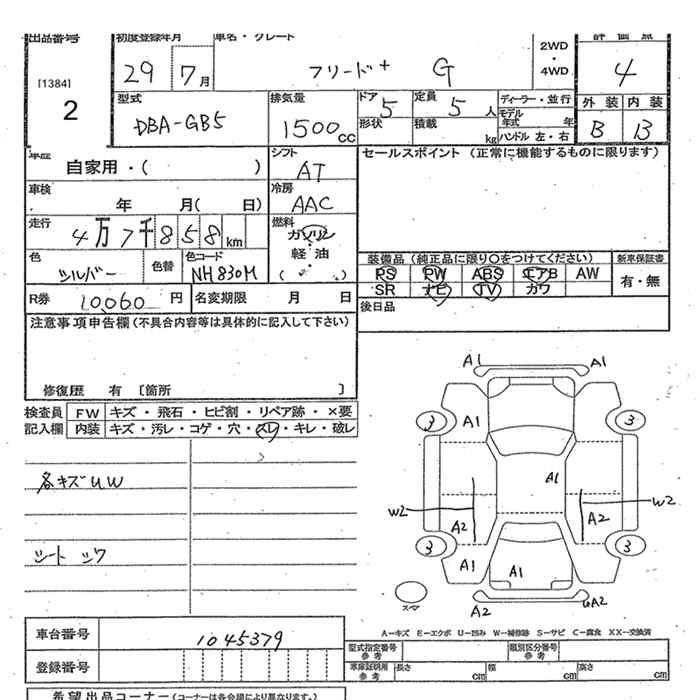 出品番号 初度登録年月 車名・グレード 評価点
[1384] 29 7月 フリード+ G 2WD・4WD 4
2
型式 排気量 ドア 5 定員 5人 ディーラー・並行 外装 内装
DBA-GB5 1500cc 形状 積載 kg モデル年式 年 B B
ハンドル 左・右
車歴 自家用・( ) シフト AT セールスポイント (正常に機能するものに限ります)
車検 年 月( 日) 冷房 AAC
走行 4万7千858km 燃料 ガソリン
軽・油
( )
色 シルバー 色替 色コード NH830M
装備品 (純正品に限り○をつけてください) 新車保証書
PS PW ABS エアB AW 有・無
SR ナビ TV カワ
R券 10,060円 名変期限 月 日 後日品
注意事項申告欄 (不具合内容等は具体的に記入して下さい)
修復歴 有 [箇所 ]
検査員記入欄 FW キズ・飛石・ヒビ割・リペア跡・×要
内装 キズ・汚レ・コゲ・穴・スレ・キレ・破レ
各キズUW
シート シワ
A1 A1
3 A1 3
A1
W2 A2 A2 W2
3 A1 A1 3
スペア A2 UA2
A-キズ E-エクボ U-凹み W-補修跡 S-サビ C-腐食 XX-交換済
車台番号 1045379 型式指定番号 参考 類別区分番号 参考
登録番号 車庫証明用 参考 長さ cm 幅 cm 高さ cm
希望出品コーナー (コーナーは各会場により異なります。)